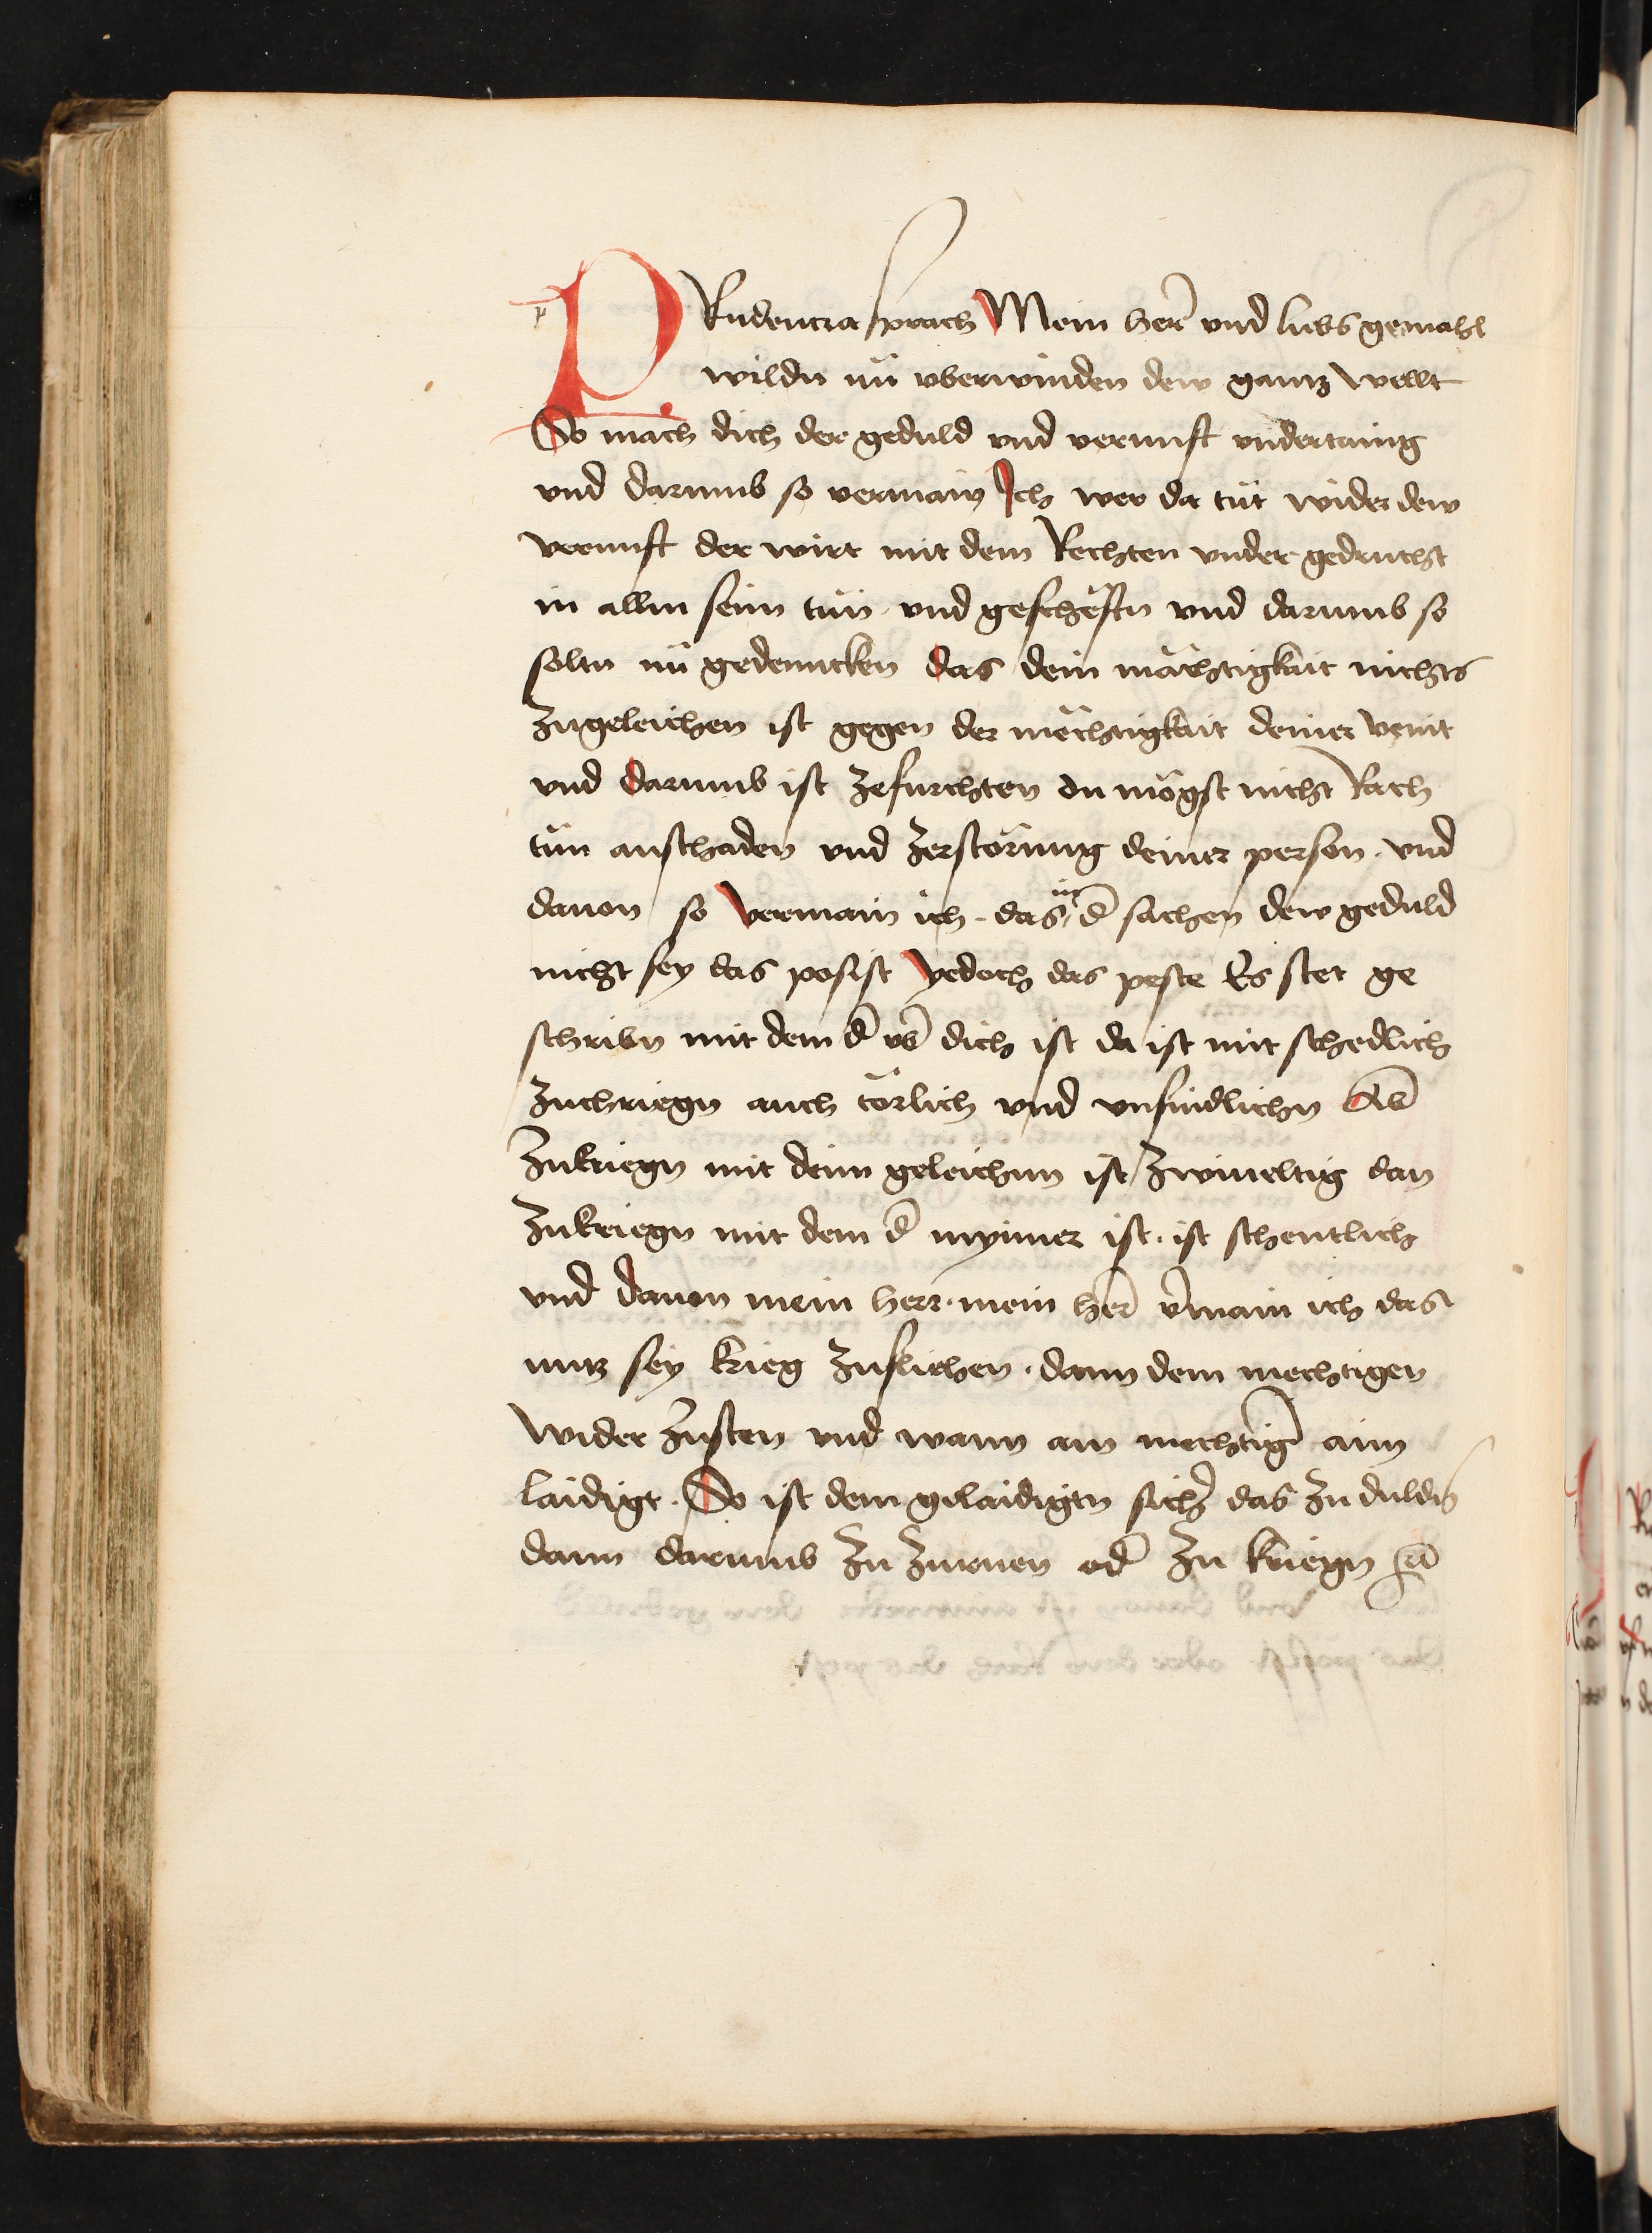 PRudencia sprach Mein her̄ vnd liebs gemahl
wildu nü vberwinden dew gantz wellt
So mach dich der geduld vnd vernuft vndertainig
vnd darumb so vermain Ich wer da tüt wider dew
vernuft der wirt mit dem Rechten vnder gedruckt
in allm seim tün vnd gescheftn vnd darumb so
soltu nü gedenncken das dein mächtigkait nichts
zugeleichen ist gegen der mëchtigkait deiner veint
vnd darumb ist zefurchten du mögst nicht Rach
tün anschaden vnd zerstörung deiner person · vnd
dauon so vermain ich · das in d̄ sachen dew geduld
nicht sey das posist yedoch das peste Es stet ge
schribn mit dem d̄ vb̄ dich ist da ist mit schedlich
zuchriegn auch törlich vnd vnsindlichn Ab̄
zukriegn mit deim geleichnn ist zwiueltig dan
zukriegn mit dem d̄ mynner ist · ist schentlich
vnd dauon mein herr · mein her̄ v̄main ich das
nutz sey krieg zuflichen · dann dem mechtigen
wider zusten vnd wann ain mechtiḡ aim
laidigt · So ist dem gelaidigtn sich̄ das zu duldn
dann darumb zu zurnen od̄ zu kriegn